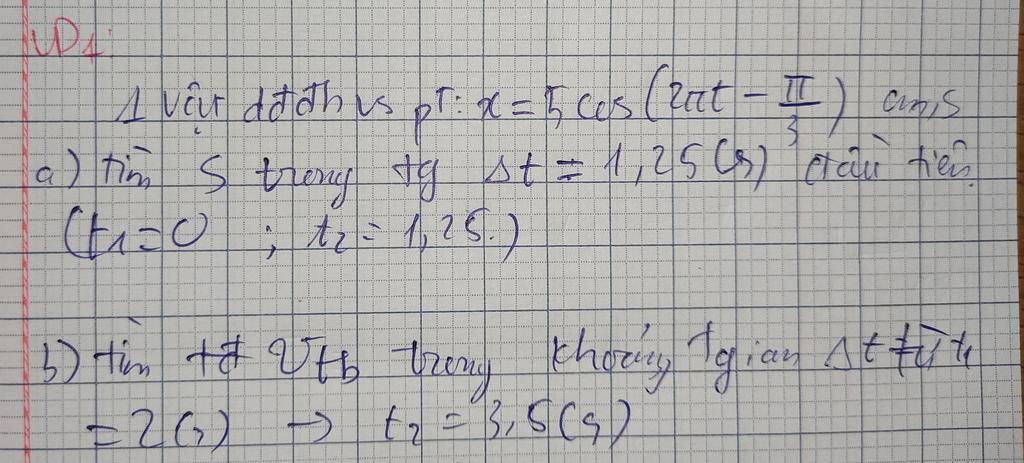 VD1:
1 vật dđđh vs pt: x = 5 cos (2πt - π/3) cm, s
a) tìm S trong tg Δt = 1,25 (s) đầu tiên
(t₁ = 0 ; t₂ = 1,25.)
b) tìm tđ Vtb trong khoảng tgian Δt từ t₁
= 2 (s) → t₂ = 3,5 (s)